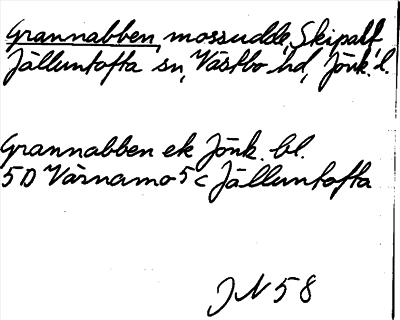 Grannabben, mossudde, Skipalt
Jälluntofta sn, Västbo hd, Jönk. l.
Grannabben ek Jönk. bl.
5D Värnamo 5c Jälluntofta
JN 58